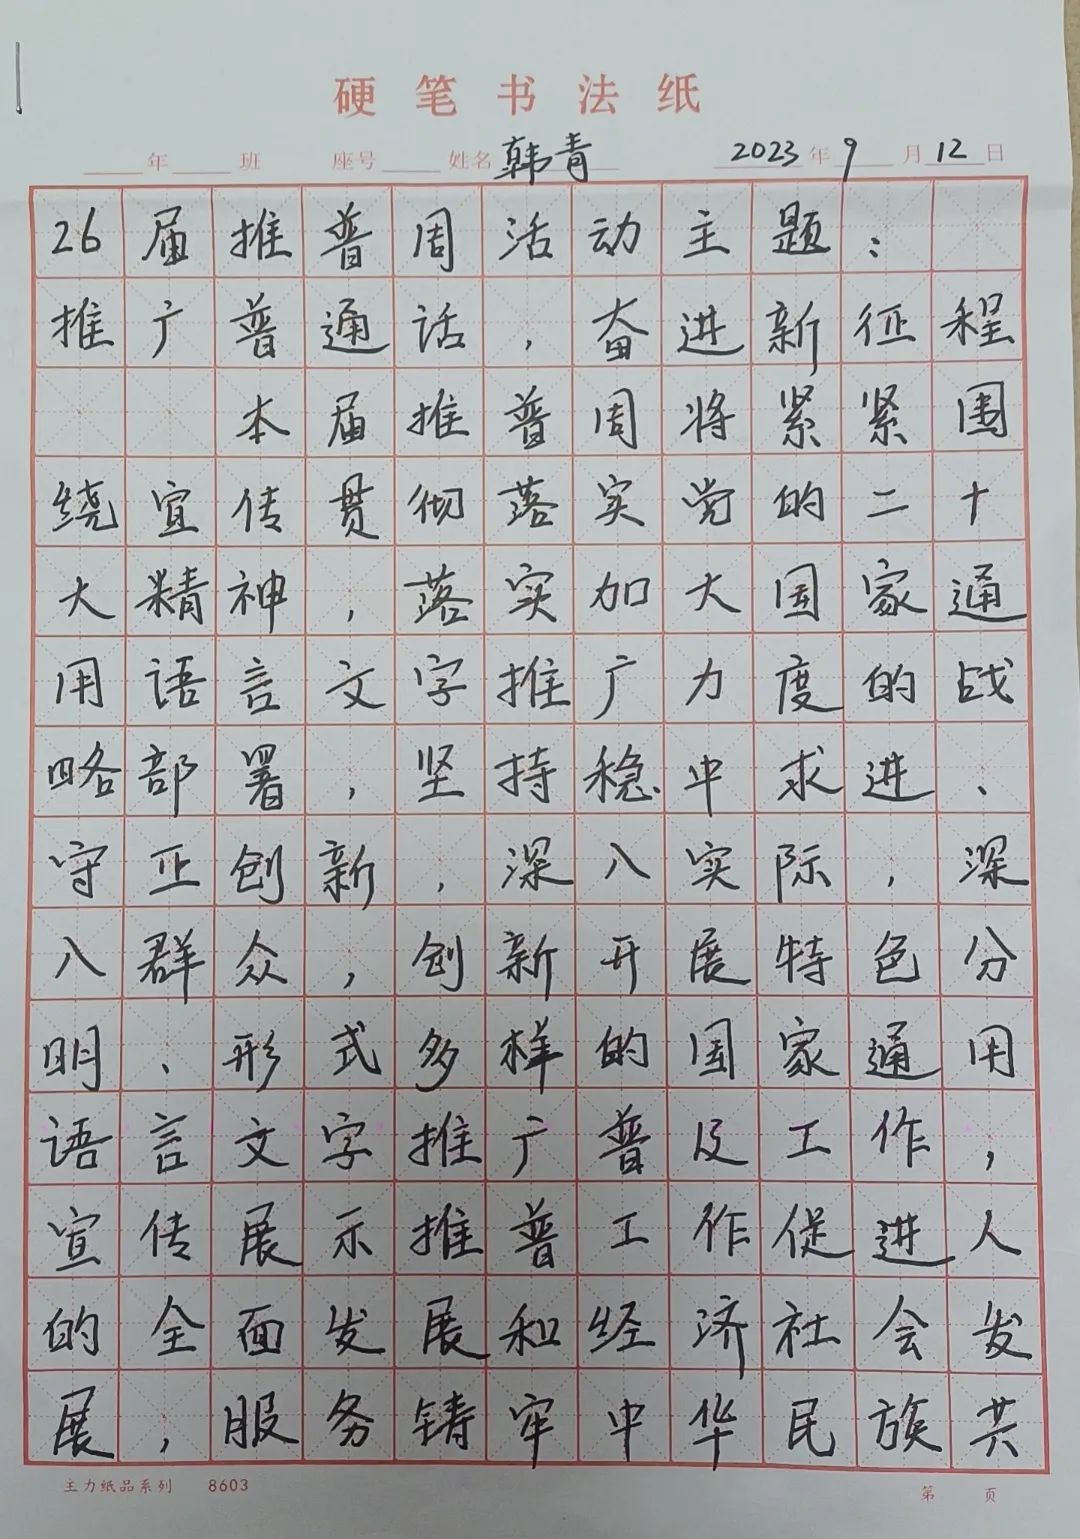 硬笔书法纸
年 班 座号 姓名 韩青 2023年9月12日
26届推普周活动主题：
推广普通话，奋进新征程
本届推普周将紧紧围
绕宣传贯彻落实党的二十
大精神，落实加大国家通
用语言文字推广力度的战
略部署，坚持稳中求进、
守正创新，深入实际，深
入群众，创新开展特色分
明、形式多样的国家通用
语言文字推广普及工作，
宣传展示推普工作促进人
的全面发展和经济社会发
展，服务铸牢中华民族共
主力纸品系列 8603 第 页